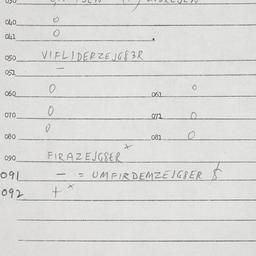 040 0
041 0
050 VIFLIDERZEJG83R
051 —
060 0 061 0
070 0 071 0
080 0 081 0
090 FIRAZEJG8ER x
091 — = UMFIRDEMZEJG8ER
092 + x